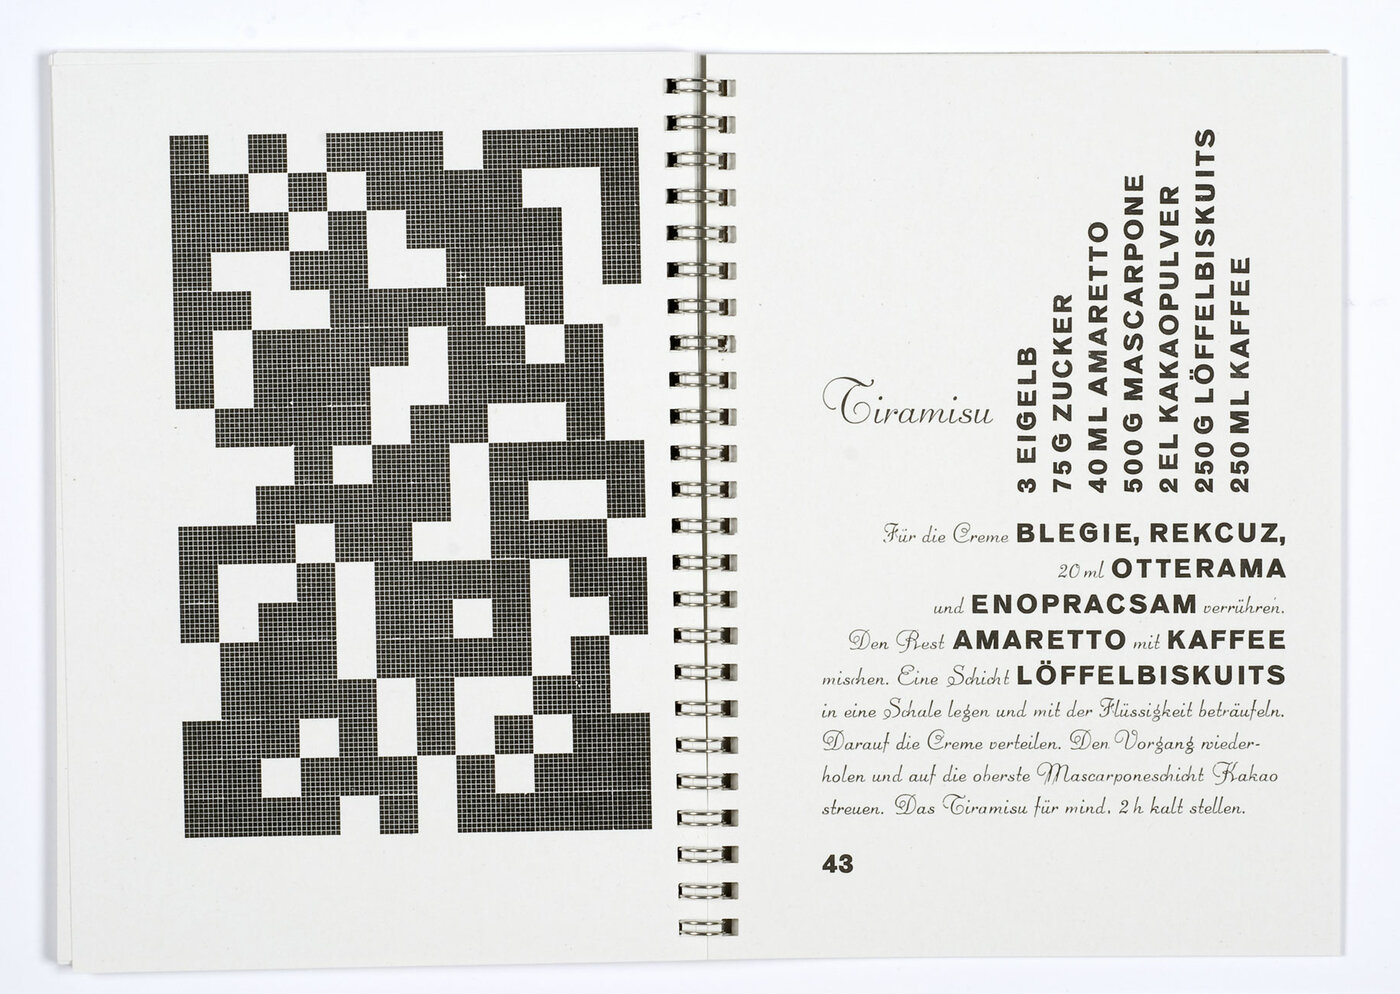 Tiramisu
3 EIGELB
75 G ZUCKER
40 ML AMARETTO
500 G MASCARPONE
2 EL KAKAOPULVER
250 G LÖFFELBISKUITS
250 ML KAFFEE
Für die Creme BLEGIE, REKCUZ,
20 ml OTTERAMA
und ENOPRACSAM verrühren.
Den Rest AMARETTO mit KAFFEE
mischen. Eine Schicht LÖFFELBISKUITS
in eine Schale legen und mit der Flüssigkeit beträufeln.
Darauf die Creme verteilen. Den Vorgang wieder-
holen und auf die oberste Mascarponeschicht Kakao
streuen. Das Tiramisu für mind. 2 h kalt stellen.
43